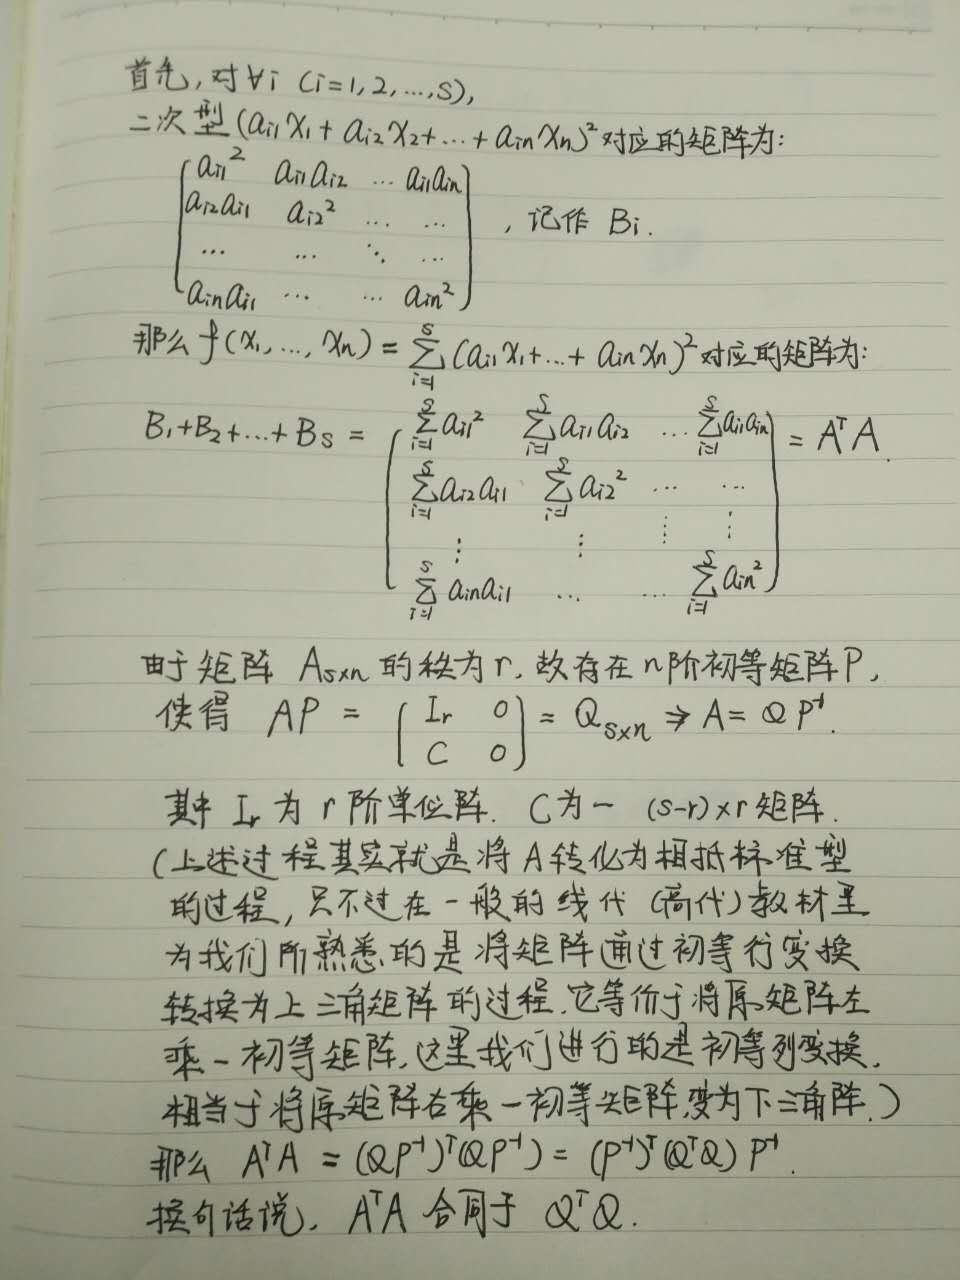 首先,对∀i (i=1,2,...,s),
二次型(ai1X1+ai2X2+...+ainXn)²对应的矩阵为:
ai1² ai1ai2 ... ai1ain
ai2ai1 ai2² ... ...
... ... ⋱ ...
ainai1 ... ... ain²
,记作 Bi.
那么f(X1,...,Xn)=∑_{i=1}^{s}(ai1X1+...+ainXn)²对应的矩阵为:
B1+B2+...+Bs = ( ∑_{i=1}^{s}ai1² ∑_{i=1}^{s}ai1ai2 ... ∑_{i=1}^{s}ai1ain = AᵀA.
∑_{i=1}^{s}ai2ai1 ∑_{i=1}^{s}ai2² ... ...
⋮ ⋮ ⋮ ⋮
∑_{i=1}^{s}ainai1 ... ... ∑_{i=1}^{s}ain² )
由于矩阵 As×n的秩为r,故存在n阶初等矩阵P,
使得 AP = ( Ir 0 ; C 0 ) = Qs×n ⇒ A=QP⁻¹.
其中Ir为r阶单位阵. C为一(s-r)×r矩阵.
(上述过程其实就是将A转化为相抵标准型
的过程,只不过在一般的线代(高代)教材里
为我们所熟悉的是将矩阵通过初等行变换
转换为上三角矩阵的过程.它等价于将原矩阵左
乘一初等矩阵.这里我们进行的是初等列变换.
相当于将原矩阵右乘一初等矩阵,变为下三角阵.)
那么 AᵀA = (QP⁻¹)ᵀ(QP⁻¹) = (P⁻¹)ᵀ(QᵀQ)P⁻¹.
换句话说, AᵀA 合同于 QᵀQ.